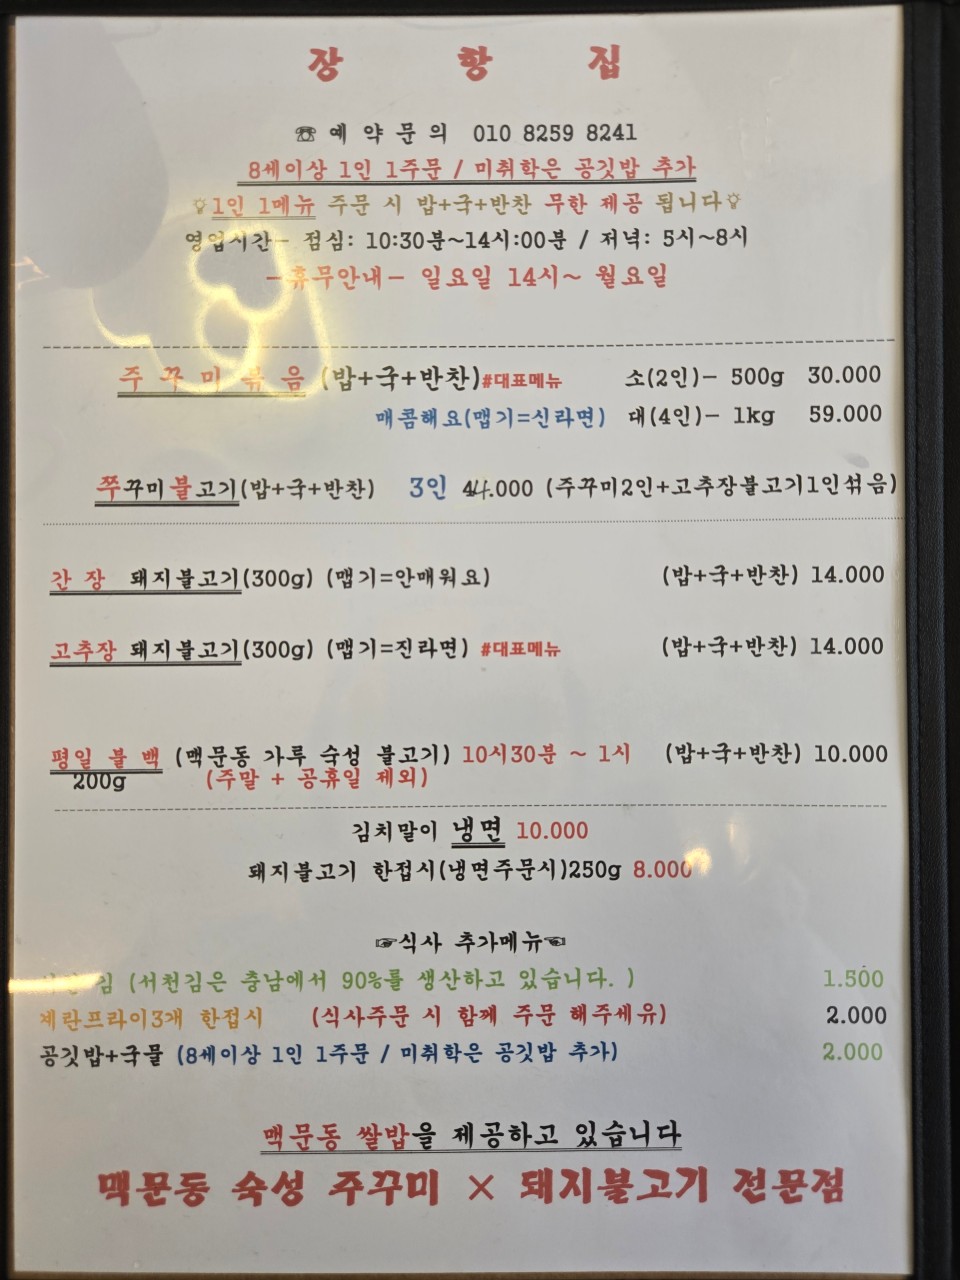 장 황 집
☏ 예 약 문 의 010 8259 8241
8세이상 1인 1주문 / 미취학은 공깃밥 추가
1인 1메뉴 주문 시 밥+국+반찬 무한 제공 됩니다
영업시간- 점심: 10:30분~14시:00분 / 저녁: 5시~8시
-휴무안내- 일요일 14시~ 월요일
주 꾸 미 볶 음 (밥+국+반찬)#대표메뉴 소(2인)- 500g 30.000
매콤해요(맵기=신라면) 대(4인)- 1kg 59.000
쭈꾸미불고기(밥+국+반찬) 3인 44.000 (주꾸미2인+고추장불고기1인섞음)
간 장 돼지불고기(300g) (맵기=안매워요) (밥+국+반찬) 14.000
고추장 돼지불고기(300g) (맵기=진라면) #대표메뉴 (밥+국+반찬) 14.000
평일 불 백 (맥문동 가루 숙성 불고기) 10시30분 ~ 1시 (밥+국+반찬) 10.000
200g (주말 + 공휴일 제외)
김치말이 냉면 10.000
돼지불고기 한접시(냉면주문시)250g 8.000
☞식사 추가메뉴☜
김 (서천김은 충남에서 90%를 생산하고 있습니다. ) 1.500
계란프라이3개 한접시 (식사주문 시 함께 주문 해주세유) 2.000
공깃밥+국물 (8세이상 1인 1주문 / 미취학은 공깃밥 추가) 2.000
맥문동 쌀밥을 제공하고 있습니다
맥문동 숙성 주꾸미 × 돼지불고기 전문점